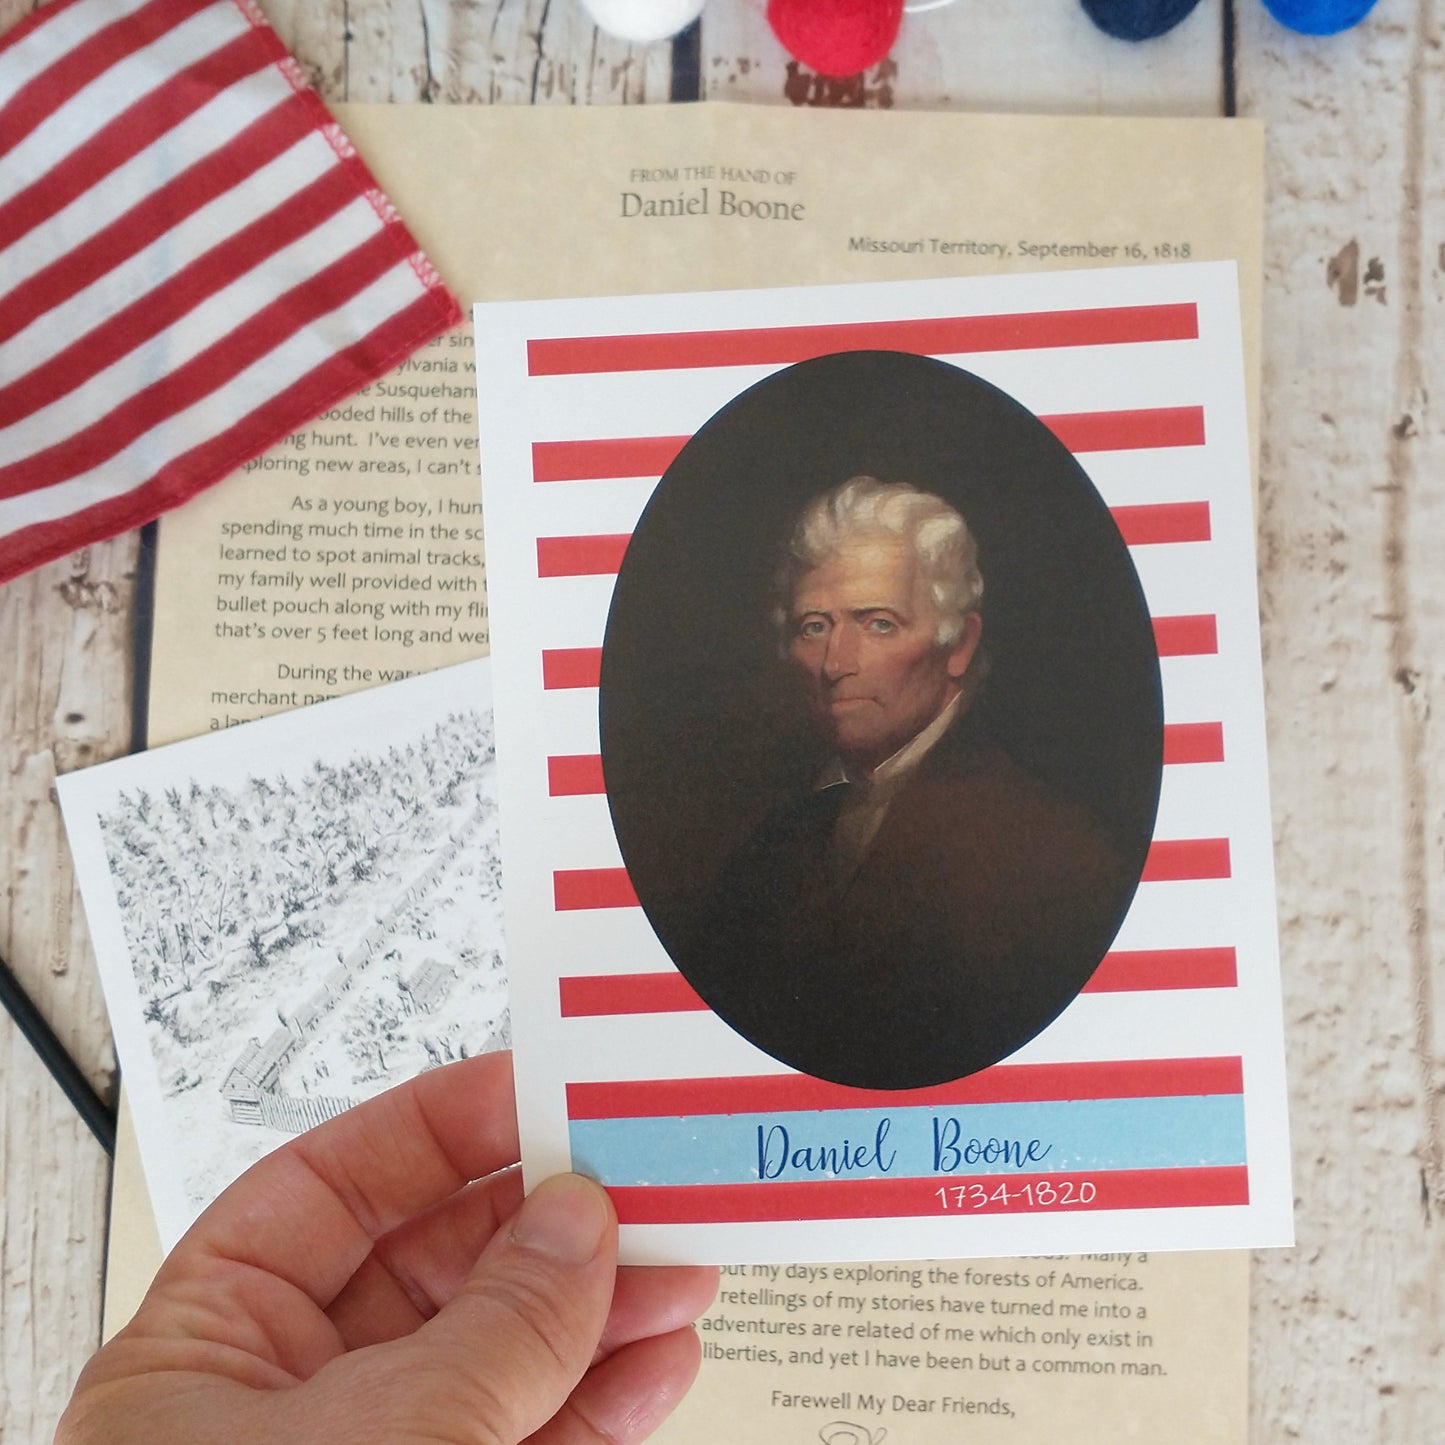 FROM THE HAND OF
Daniel Boone
Missouri Territory, September 16, 1818
sin
ylvania
Susquehan
hills of the
hunt. I've even ver
ploring new areas, I can't
As a young boy, I hun
spending much time in the sc
learned to spot animal tracks,
my family well provided with
bullet pouch along with my fli
that's over 5 feet long and wei
During the war
merchant
a
Daniel Boone
1734-1820
Many a
out my days exploring the forests of America.
retellings of my stories have turned me into a
adventures are related of me which only exist in
liberties, and yet I have been but a common man.
Farewell My Dear Friends,